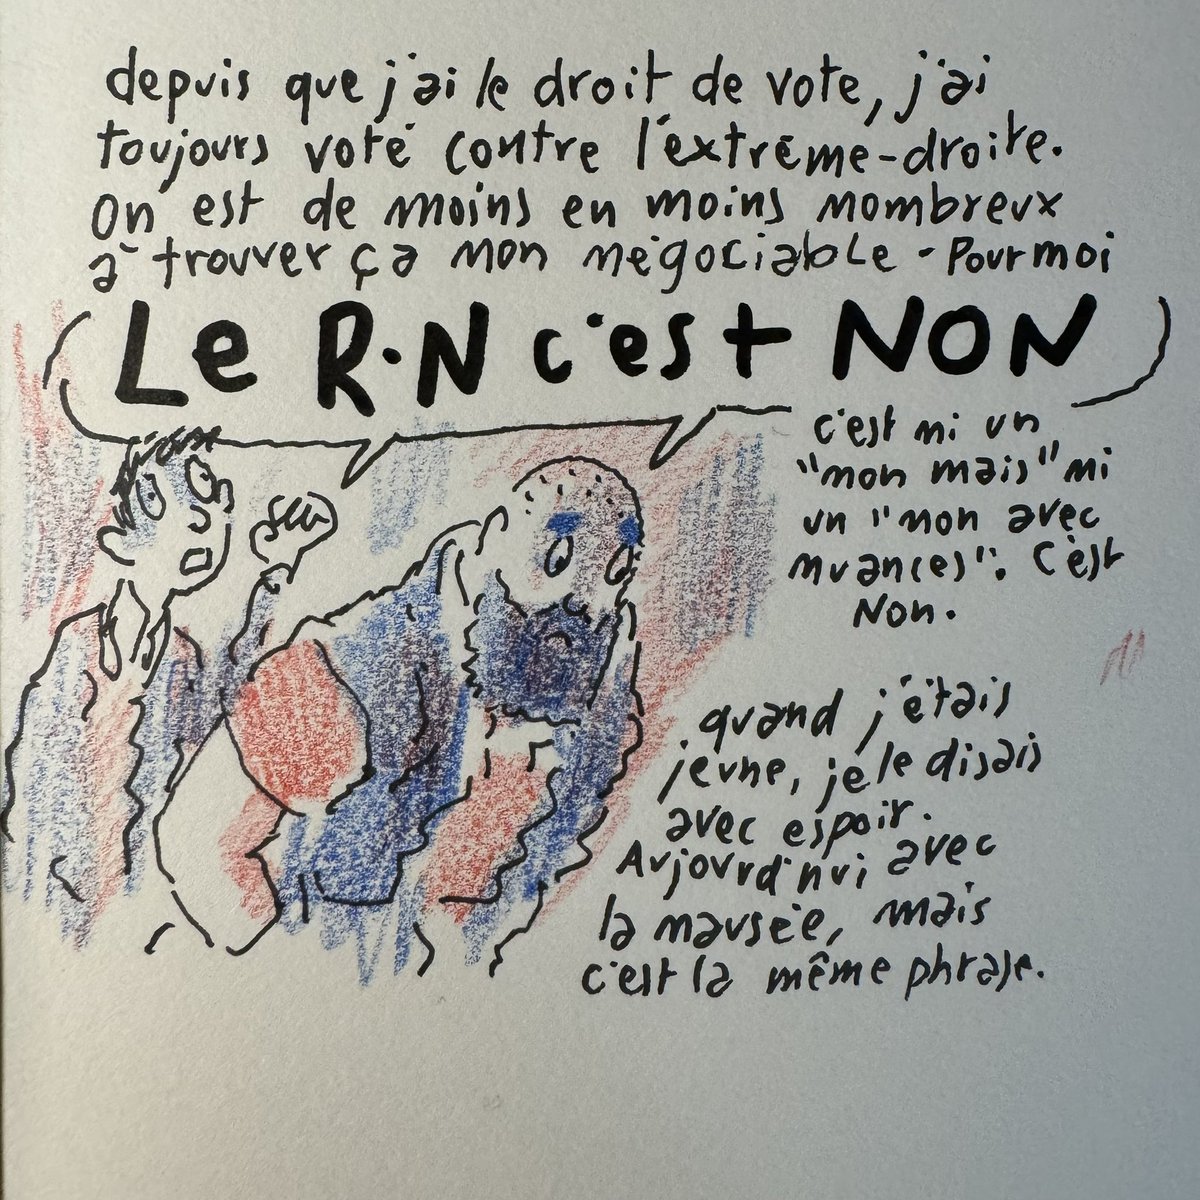 depuis que j'ai le droit de vote, j'ai
toujours voté contre l'extrême-droite.
On est de moins en moins nombreux
à trouver ça non négociable - Pour moi
Le R.N c'est NON
c'est ni un
"non mais" ni
un "non avec
nuances". C'est
Non.
quand j'étais
jeune, je le disais
avec espoir.
Aujourd'hui avec
la nausée, mais
c'est la même phrase.